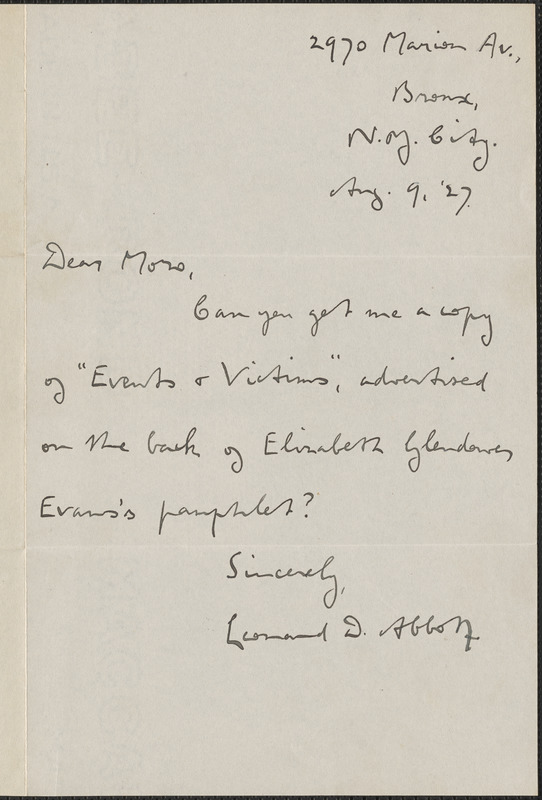 2970 Marion Av.,
Bronx,
N.Y. City.
Aug. 9, '27.
Dear Moro,
Can you get me a copy
of "Events & Victims", advertised
on the back of Elizabeth Glendower
Evans's pamphlet?
Sincerely,
Leonard D. Abbott